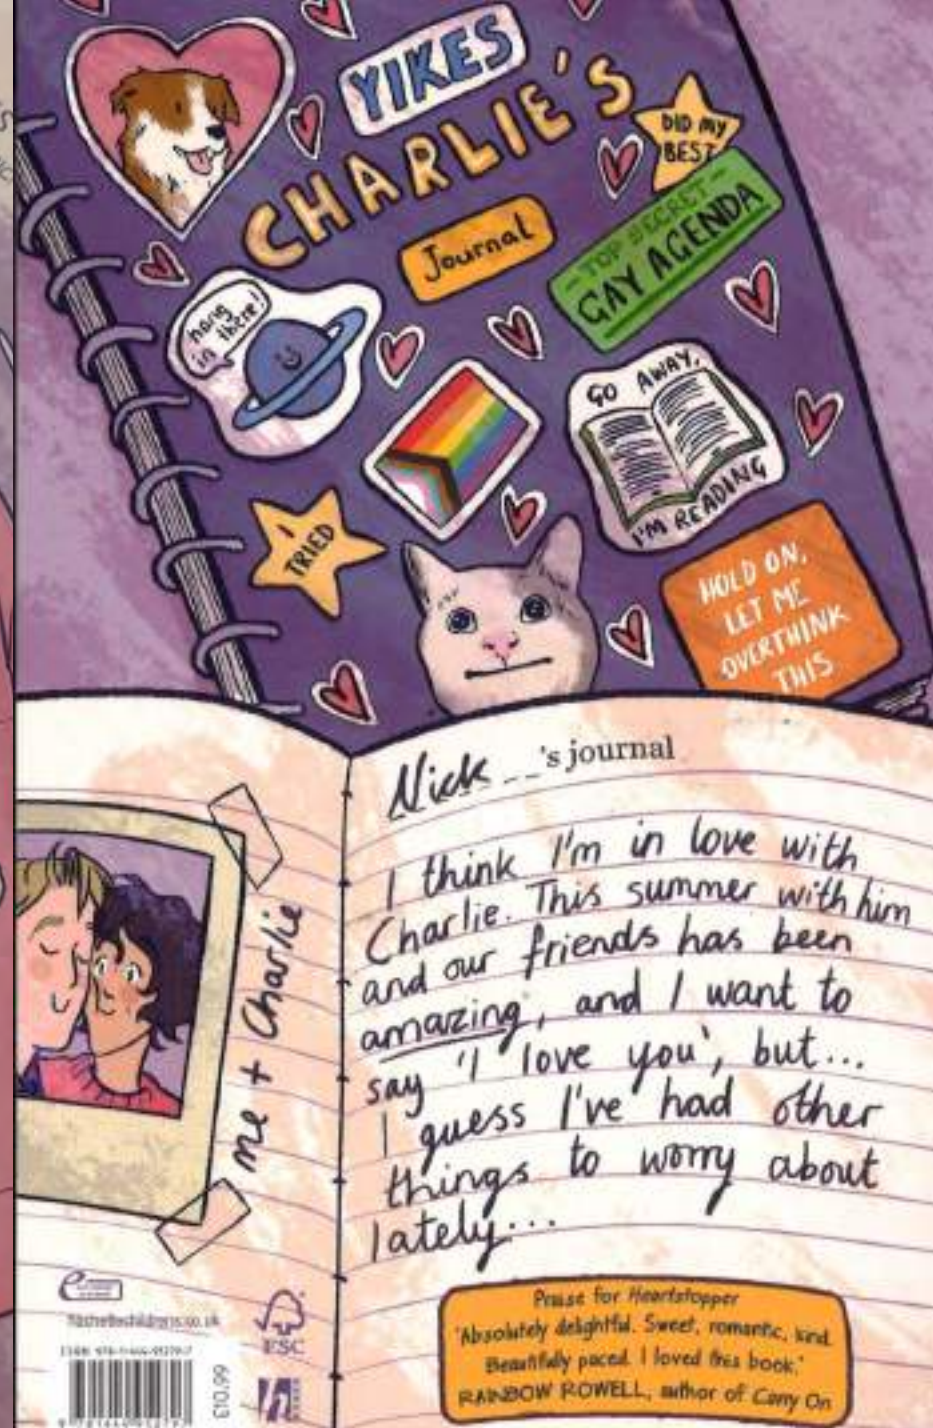 YIKES
CHARLIE'S
Journal
DID MY
BEST
- TOP SECRET -
GAY AGENDA
hang
in there!
GO AWAY,
I'M READING
I
TRIED
HOLD ON,
LET ME
OVERTHINK
THIS
Nick __'s journal
I think I'm in love with
Charlie. This summer with him
and our friends has been
amazing, and I want to
say 'I love you', but...
I guess I've had other
things to worry about
lately...
me + Charlie
Praise for Heartstopper
'Absolutely delightful. Sweet, romantic, kind.
Beautifully paced. I loved this book.'
RAINBOW ROWELL, author of Carry On